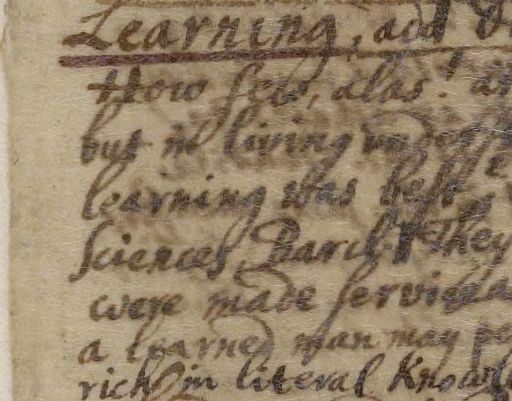 Learning, and
How few, alas!
but in living under
learning was best
Sciences, Barcl. They
were made
a learned man may
rich in literal Know